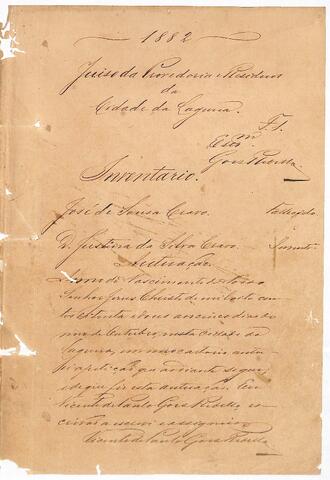 1882
Juiso da Provedoria e Residuos
da
Cidade da Laguna.
Fs.
Escrm
Goes Rebello
Inventario.
José de Sousa Cravo. Fallecido
D. Justina da Silva Cravo. Inventr
Autuação.
Anno do Nascimento de Nosso
Senhor Jesus Christo de mil oito cen
tos oitenta e dous aos cinco dias do
mes de Outubro, nesta cidade da
Laguna, em meu cartorio autuo
a petição que adiante segue,
do que fiz esta autuação. Eu
Vicente de Paulo Goes Rebello, es
crivão a escrevi e assignei
Vicente de Paulo Goes Rebello